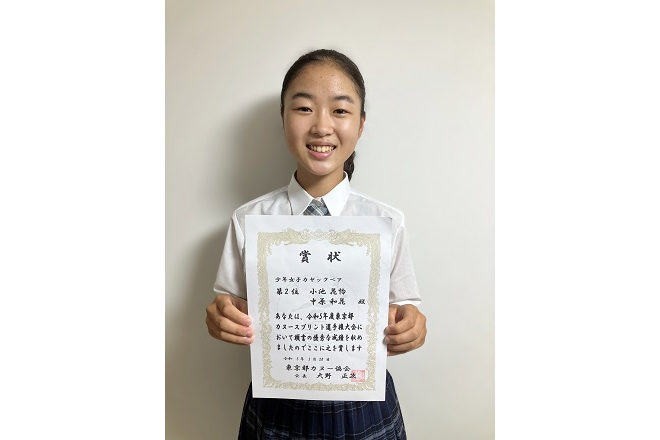 賞状
少年女子カヤックペア
第2位 小池 花怜
中原 和花 殿
あなたは、令和5年度東京都
カヌースプリント選手権大会に
おいて頭書の優秀な成績を収め
ましたのでここに之を賞します
令和5年5月28日
東京都カヌー協会
会長 大野 正次